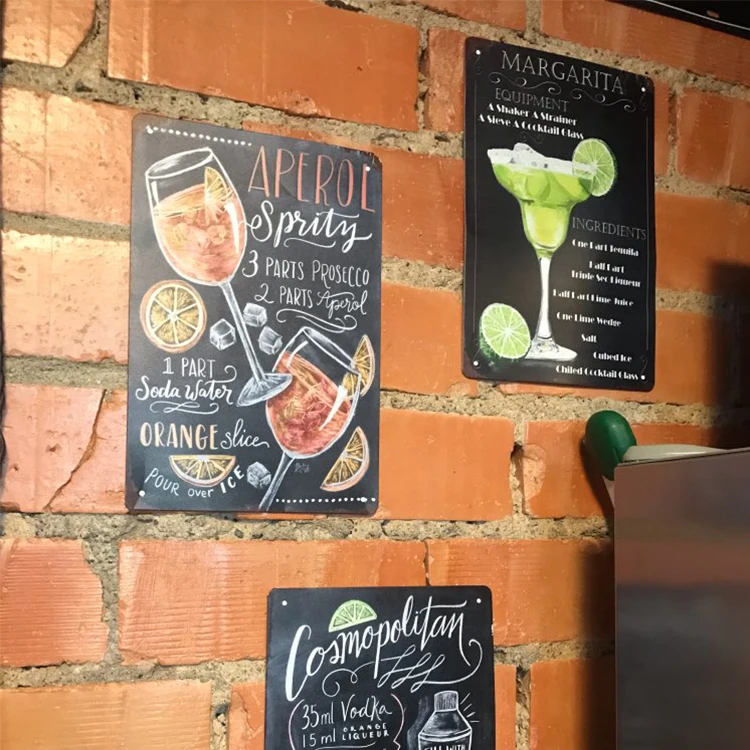 APEROL
Spritz
3 PARTS PROSECCO
2 PARTS Aperol
1 PART
Soda Water
ORANGE slice
POUR over ICE
MARGARITA
EQUIPMENT
A Shaker A Strainer
A Sieve A Cocktail Glass
INGREDIENTS
One Part Tequila
Half Part
Triple Sec Liqueur
Half Part Lime Juice
One Lime Wedge
Salt
Cubed Ice
Chilled Cocktail Glass
Cosmopolitan
35ml Vodka
15ml ORANGE
LIQUEUR
FILL WITH